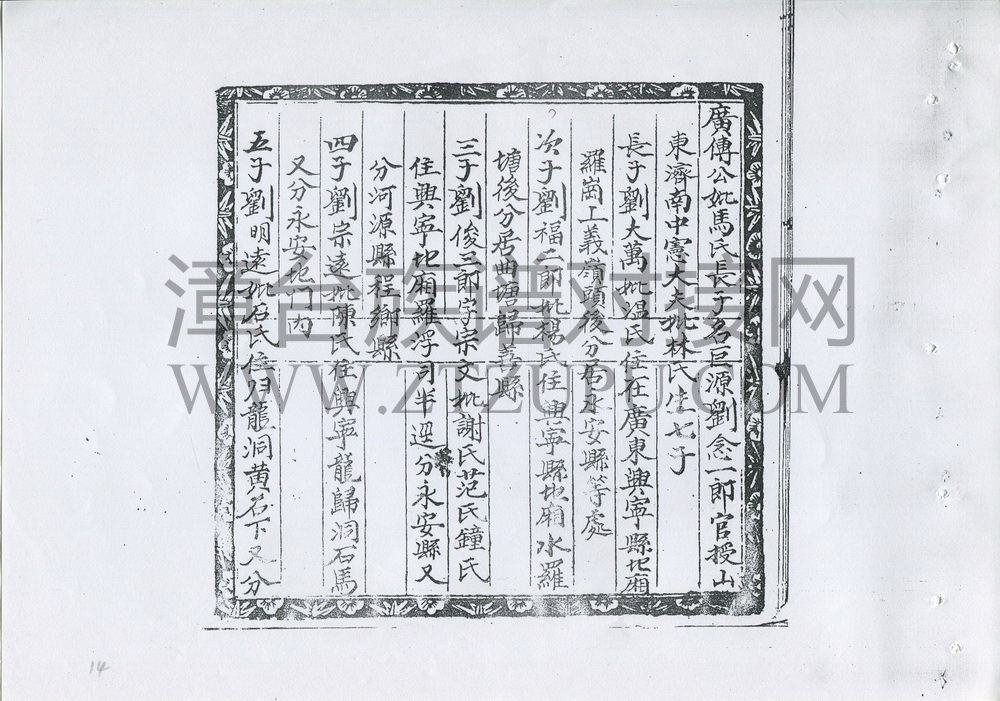 廣傳公妣馬氏長子名巨源劉念一郎官授山
東濟南中憲大夫妣林氏生七子
長子劉大萬妣温氏住在廣東興寧縣北廂
羅崗上義嶺項後分居永安縣等處
次子劉福二郎妣楊氏住興寧縣北廂水羅
塘後分居曲塘歸善縣
三子劉俊三郎字宗文妣謝氏范氏鐘氏
住興寧北廂羅浮司半逕分永安縣又
分河源縣程鄉縣
四子劉宗遠妣陳氏住興寧龍歸洞石馬
又分永安北門內
五子劉明遠妣石氏住归龍洞黄石下又分
漳台族谱对接网
WWW.ZTZUPU.COM
14